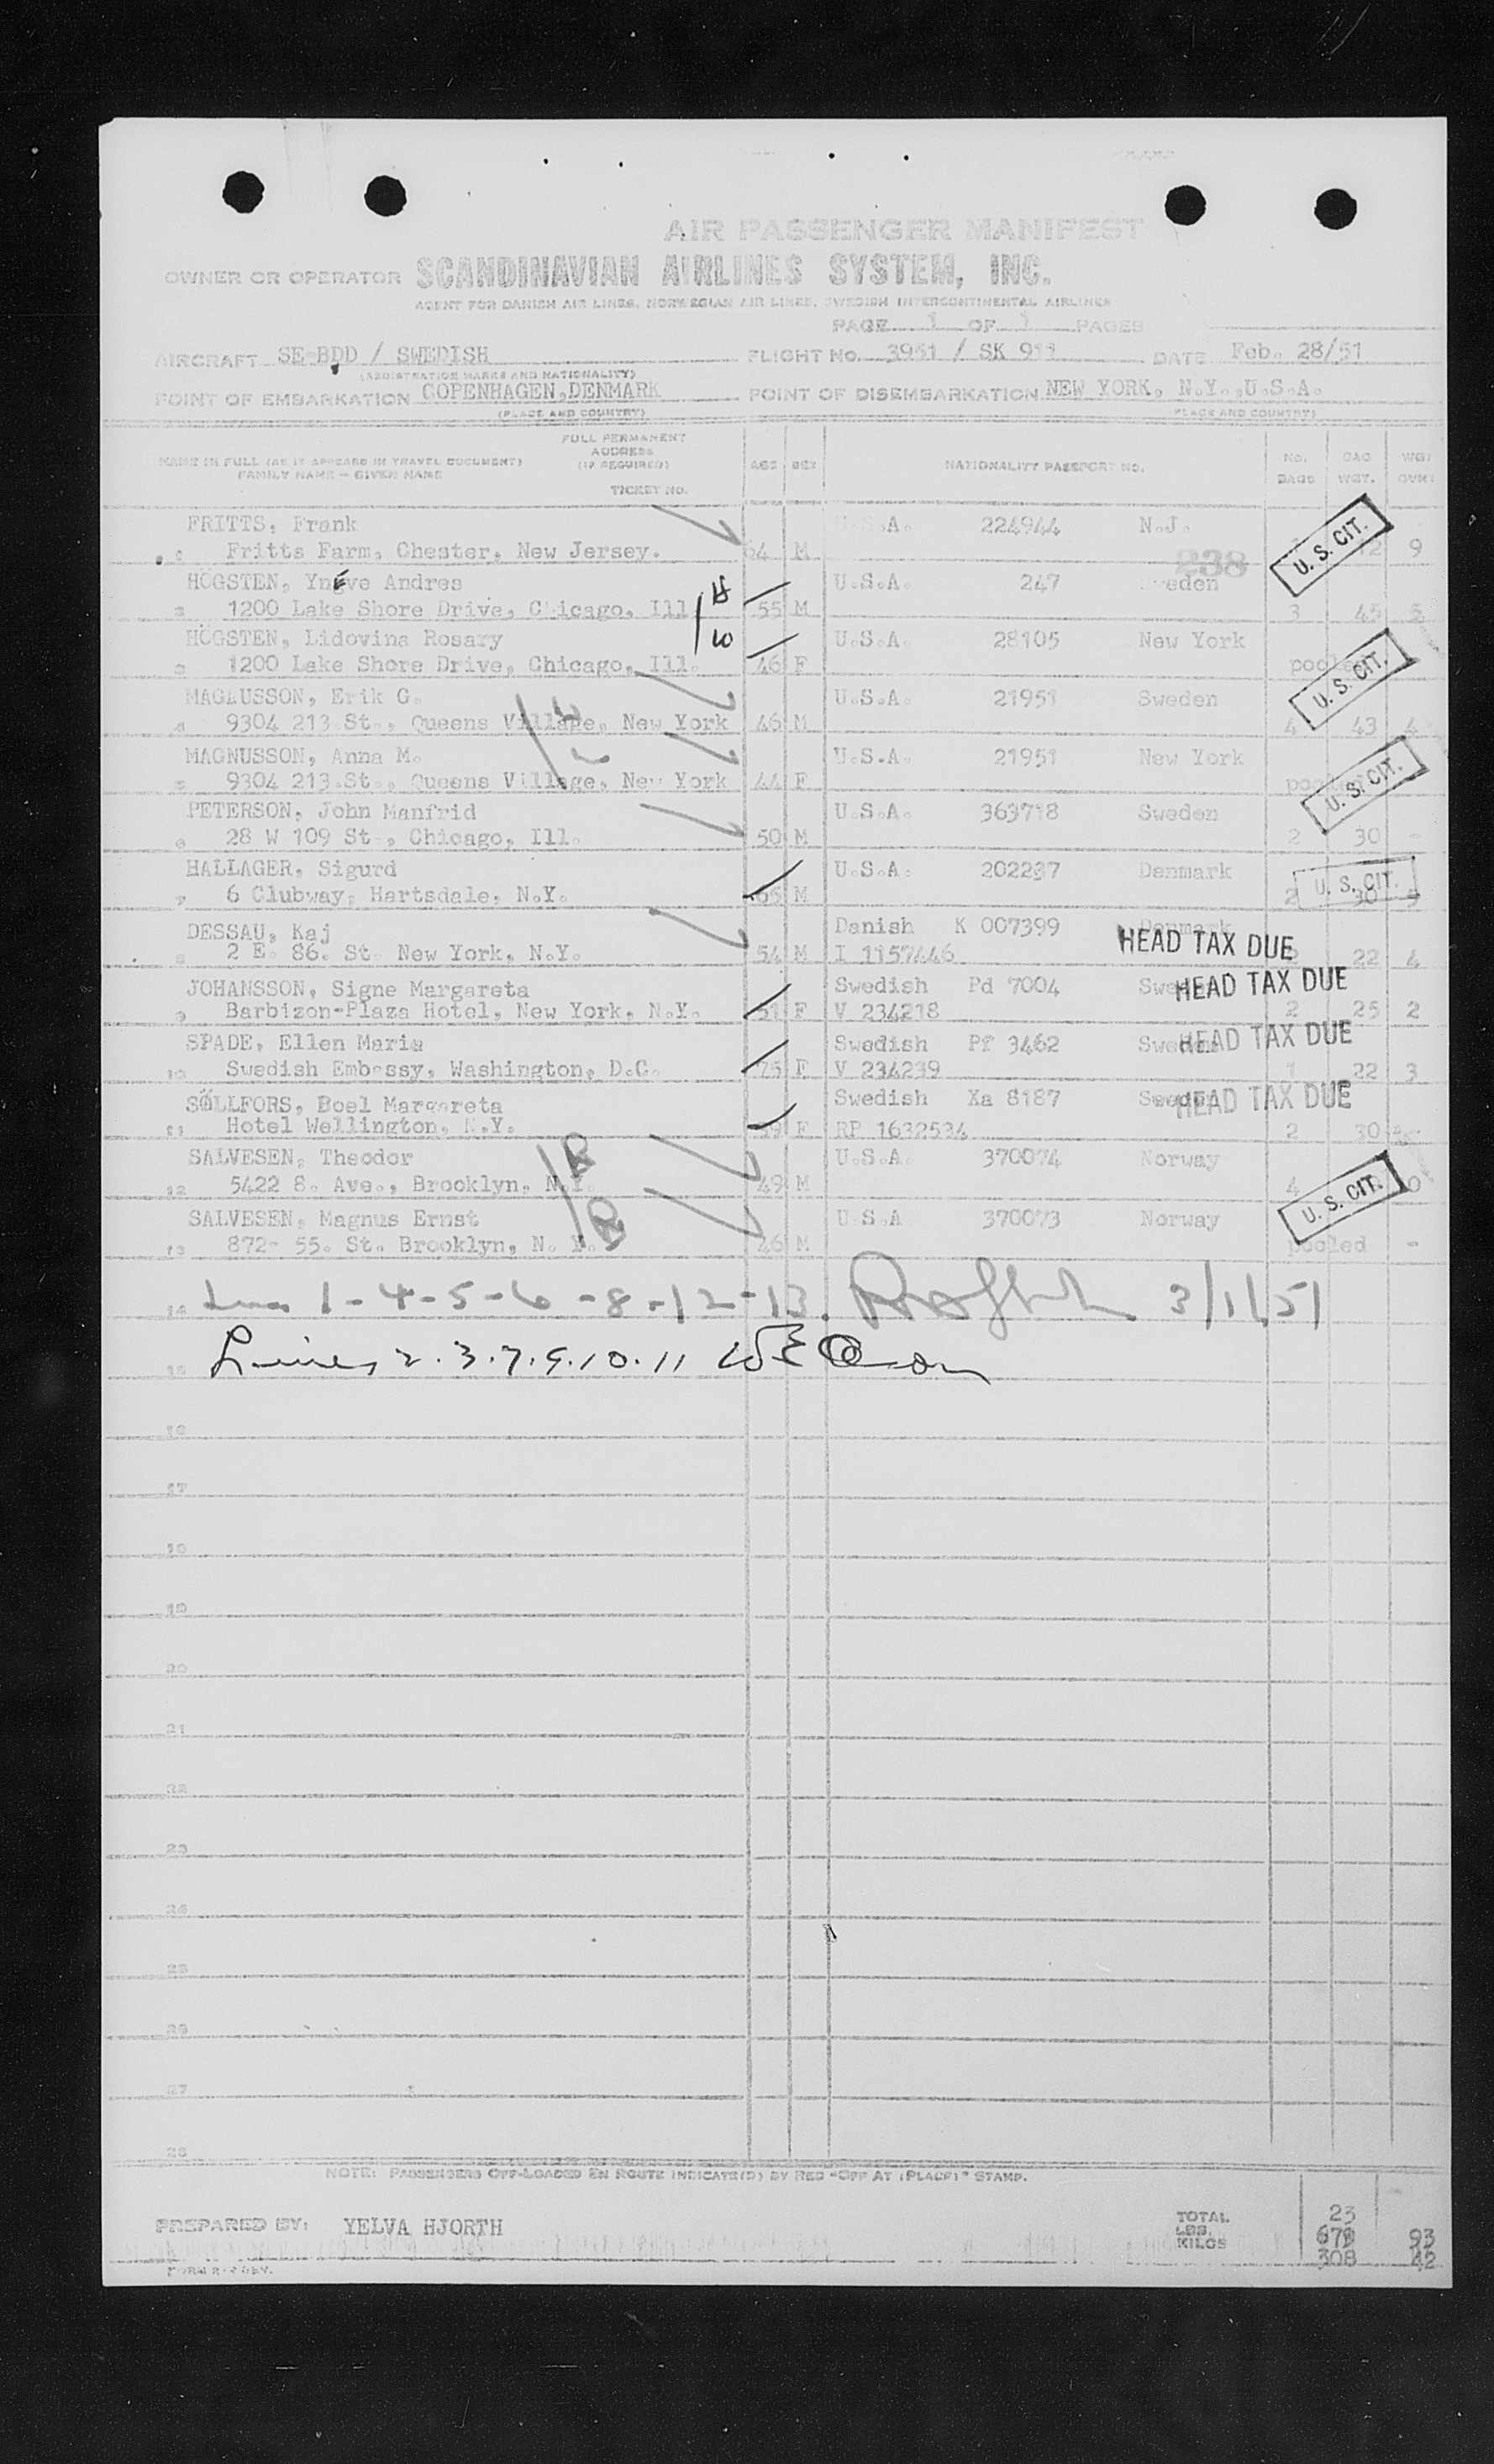 AIR PASSENGER MANIFEST
OWNER OR OPERATOR SCANDINAVIAN AIRLINES SYSTEM, INC.
AGENT FOR DANISH AIR LINES, NORWEGIAN AIR LINES, SWEDISH INTERCONTINENTAL AIRLINES
PAGE 1 OF 1 PAGES
AIRCRAFT SE-BDD / SWEDISH FLIGHT NO. 3951 / SK 911 DATE Feb. 28/51
(REGISTRATION MARKS AND NATIONALITY)
POINT OF EMBARKATION COPENHAGEN, DENMARK POINT OF DISEMBARKATION NEW YORK, N.Y., U.S.A.
(PLACE AND COUNTRY) (PLACE AND COUNTRY)
NAME IN FULL (AS IT APPEARS IN TRAVEL DOCUMENT) FAMILY NAME - GIVEN NAME FULL PERMANENT ADDRESS (IF REQUIRED) TICKET NO. AGE SEX NATIONALITY PASSPORT NO. NO. BAGS BAG WGT. WGT OVHT
FRITTS, Frank U.S.A. 224944 N.J.
1 Fritts Farm, Chester, New Jersey. 64 M 9
238
U. S. CIT.
HÖGSTEN, Yngve Andres U.S.A. 247 Sweden
2 1200 Lake Shore Drive, Chicago, Ill 55 M 3 45 5
HÖGSTEN, Lidovina Rosary U.S.A. 28105 New York
3 1200 Lake Shore Drive, Chicago, Ill. 46 F pooled
U. S. CIT.
MAGLUSSON, Erik G. U.S.A. 21951 Sweden
4 9304 213 St., Queens Village, New York 46 M 4 43 4
MAGNUSSON, Anna M. U.S.A. 21951 New York
5 9304 213.St., Queens Village, New York 44 F pooled
U. S. CIT.
PETERSON, John Manfrid U.S.A. 363718 Sweden
6 28 W 109 St., Chicago, Ill. 50 M 2 30 -
HALLAGER, Sigurd U.S.A. 202237 Denmark
7 6 Clubway, Hartsdale, N.Y. 65 M 2 30 5
U. S. CIT.
DESSAU, Kaj Danish K 007399 Denmark
8 2 E. 86. St. New York, N.Y. 54 M I 1157446 22 4
HEAD TAX DUE
JOHANSSON, Signe Margareta Swedish Pd 7004 Sweden
9 Barbizon-Plaza Hotel, New York, N.Y. 51 F V 234218 2 25 2
HEAD TAX DUE
SPADE, Ellen Maria Swedish Pf 3462 Sweden
10 Swedish Embassy, Washington, D.C. 75 F V 234239 1 22 3
HEAD TAX DUE
SÖLLFORS, Boel Margareta Swedish Xa 8187 Sweden
11 Hotel Wellington, N.Y. F RP 1632534 2 30
HEAD TAX DUE
SALVESEN, Theodor U.S.A. 370074 Norway
12 5422 8. Ave., Brooklyn, N.Y. 49 M 4
U. S. CIT.
SALVESEN, Magnus Ernst U.S.A. 370073 Norway
13 872- 55. St. Brooklyn, N. Y. 46 M pooled -
14 Lines 1-4-5-6-8-12-13. 3/1/51
15 Lines 2.3.7.9.10.11
16
17
18
19
20
21
22
23
24
25
26
27
28
NOTE: PASSENGERS OFF-LOADED EN ROUTE INDICATE(D) BY RED "OFF AT (PLACE)" STAMP.
PREPARED BY: YELVA HJORTH
TOTAL 23
LBS. 679 93
KILOS 308 42